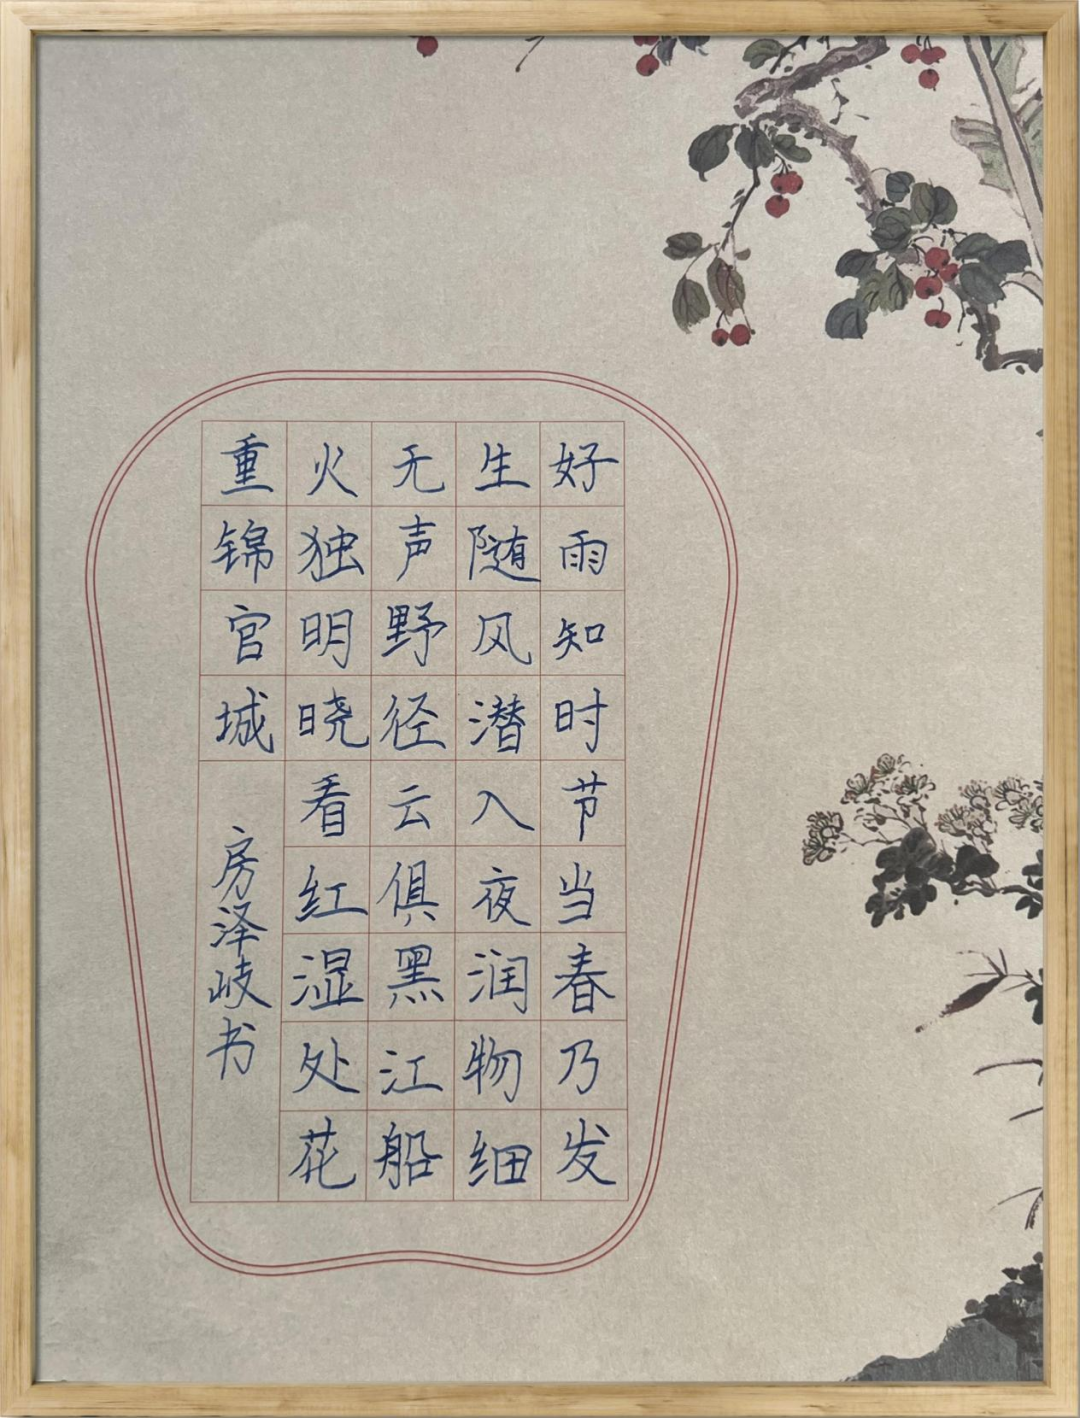 好雨知时节当春乃发
生随风潜入夜润物细
无声野径云俱黑江船
火独明晓看红湿处花
重锦官城
房泽岐书